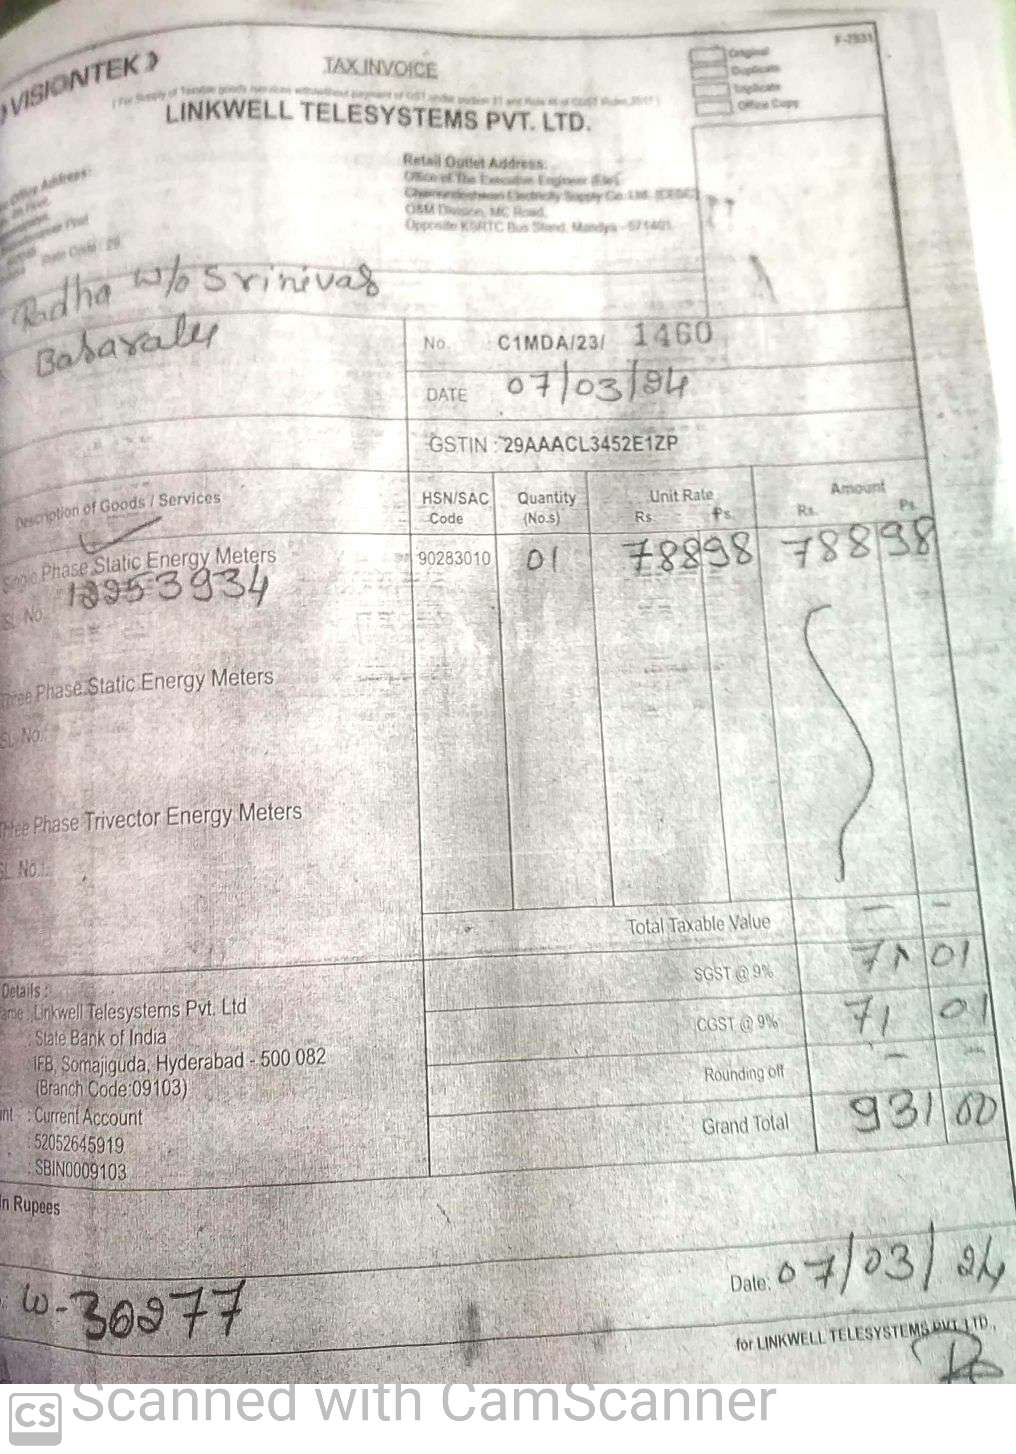 VISIONTEK
TAX INVOICE
F-7531
Original
Duplicate
Triplicate
Office Copy
LINKWELL TELESYSTEMS PVT. LTD.
Retail Outlet Address:
Office of The Executive Engineer (Ele)
Chamundeshwari Electricity Supply Co. Ltd.
O&M Division, MC Road,
Opposite KSRTC Bus Stand, Mandya - 571401.
Office Address:
State Code : 29
Radha w/o Srinivas
Basaralu
No. C1MDA/23/ 1460
DATE 07/03/24
GSTIN : 29AAACL3452E1ZP
Description of Goods / Services HSN/SAC Code Quantity (No.s) Unit Rate Rs. Ps. Amount Rs. Ps.
Single Phase Static Energy Meters 90283010 01 788 98 788 98
SL. No. 3934
Three Phase Static Energy Meters
SL. No.:
Three Phase Trivector Energy Meters
SL. No.:
Total Taxable Value — —
SGST @ 9% 71 01
CGST @ 9% 71 01
Rounding off —
Grand Total 931 00
Details :
ame : Linkwell Telesystems Pvt. Ltd
: State Bank of India
: IFB, Somajiguda, Hyderabad - 500 082
(Branch Code:09103)
nt : Current Account
: 52052645919
: SBIN0009103
In Rupees
W-30277
Date: 07/03/24
for LINKWELL TELESYSTEMS PVT. LTD.,
CS Scanned with CamScanner